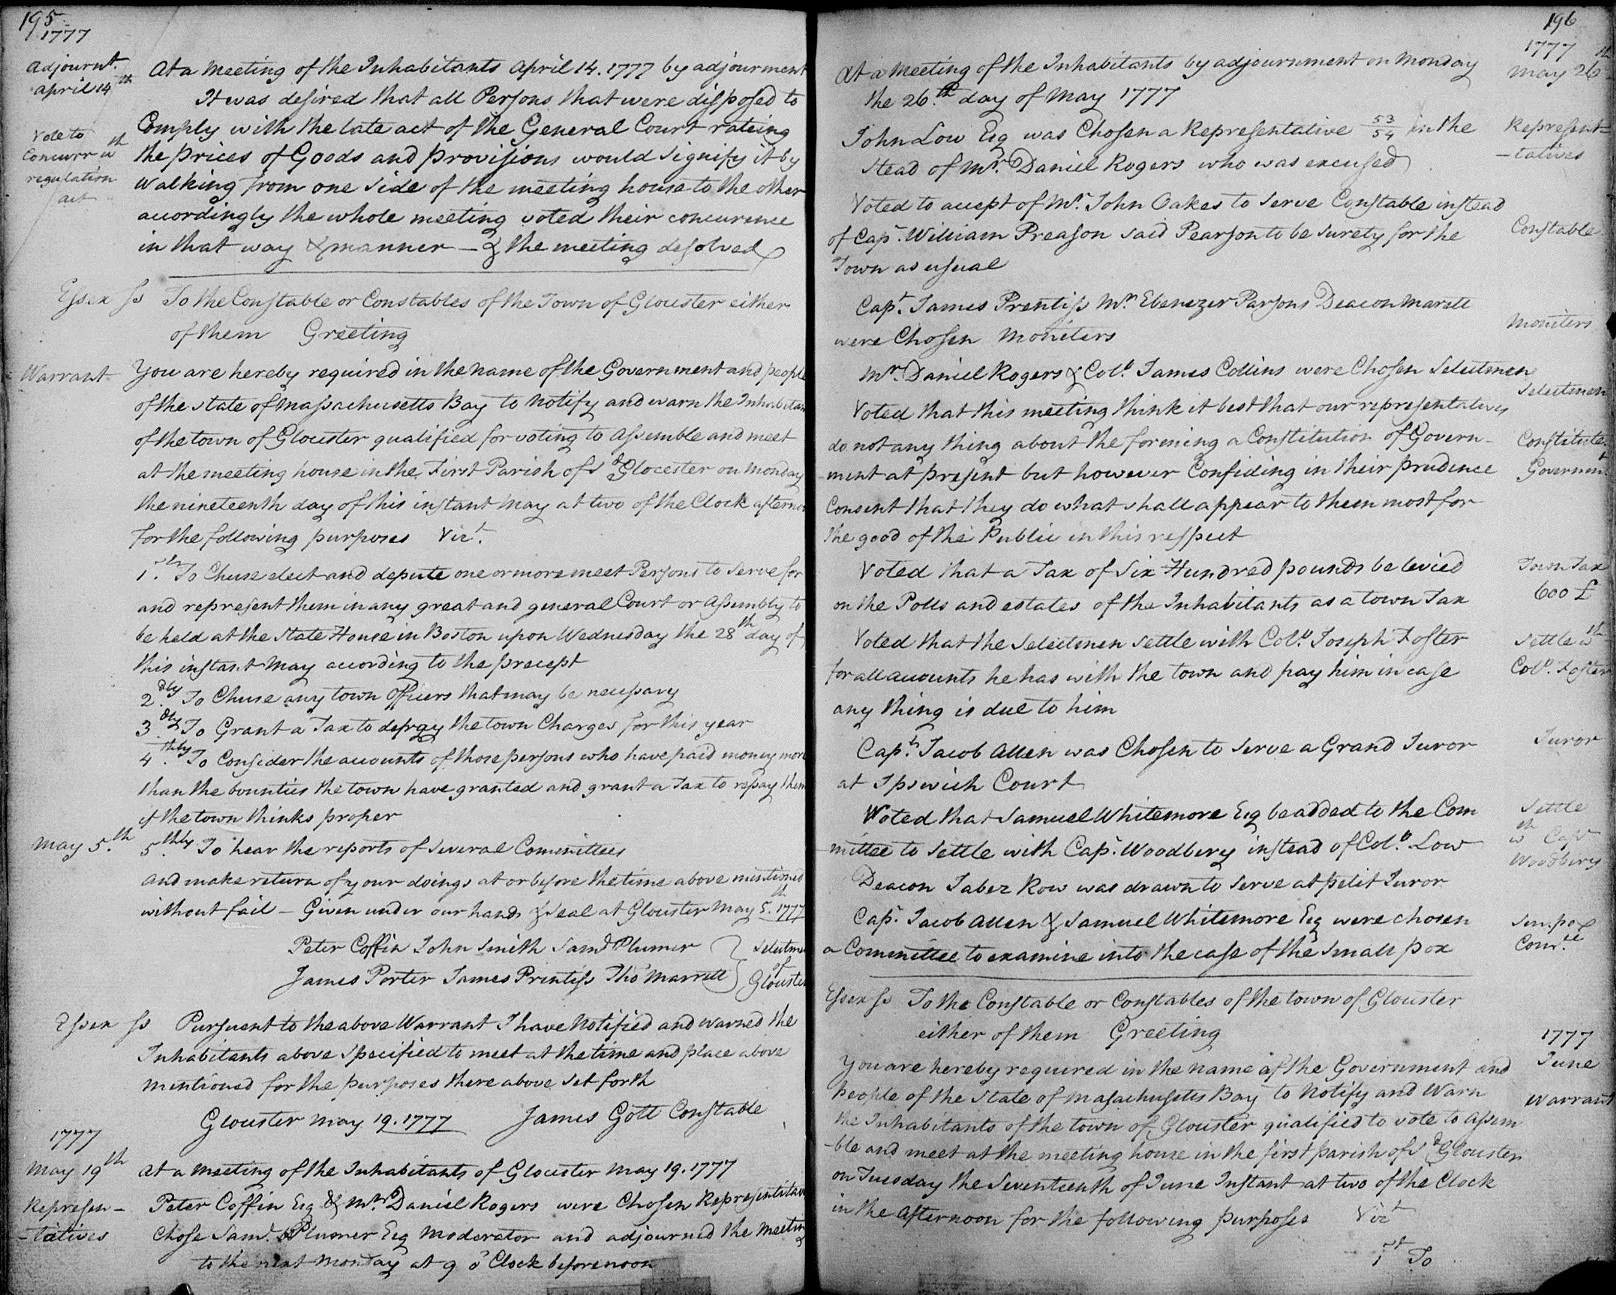 195
1777
Adjournt.
April 14th
At a meeting of the Inhabitants April 14. 1777 by adjourment
It was desired that all Persons that were disposed to
Vote to
Concurr wth
regulation
act
Comply with the late act of the General Court rateing
the prices of Goods and provisions would signify it by
walking from one side of the meeting house to the other
accordingly the whole meeting voted their concurence
in that way & manner — & the meeting desolved
Essex ss To the Constable or Constables of the Town of Glocester either
of them Greeting
Warrant
You are hereby required in the name of the Government and people
of the State of Massachusetts Bay to Notify and warn the Inhabitan
of the town of Glocester qualified for voting to Assemble and meet
at the meeting house in the First Parish of sd Glocester on monday
the nineteenth day of this instant May at two of the Clock afterno
for the following purposes Vizt.
1.st To Chuse elect and depute one or more meet Persons to serve for
and represent them in any great and general Court or Assembly to
be held at the State House in Boston upon Wednesday the 28th day of
this instant May according to the precept
2.dly To Chuse any town officers that may be necessary
3.dly To Grant a Tax to defray the town Charges for this year
4.thly To Consider the accounts of those persons who have paid money more
than the bounties the town have granted and grant a Tax to repay them
if the town thinks proper
May 5.th
5.thly To hear the reports of Several Committees
and make return of your doings at or before the time above mentioned
without fail — Given under our hands & seal at Glocester May 5.th 1777
Peter Coffin John Smith Saml Plumer } Selectme
James Porter James Printiss Tho Marrett } of Glocester
Essex ss Pursuent to the above Warrant I have Notified and warned the
Inhabitants above specified to meet at the time and place above
mentioned for the purposes there above set forth
Glocester May 19. 1777 James Gott Constable
1777
May 19th
At a meeting of the Inhabitants of Glocester May 19. 1777
Represen-
-tatives
Peter Coffin Esq & Mr. Daniel Rogers were Chosen Representative
Chose Saml. Plumer Esq Moderator and adjourned the meeting
to the next Monday at 9 o Clock beforenoon
196
1777
May 26th
At a meeting of the Inhabitants by adjournment on Monday
the 26.th day of May 1777
Represent-
-tatives
John Low Esq was Chosen a Representative 53/54 in the
stead of Mr. Daniel Rogers who was excused
Voted to accept of Mr. John Oakes to serve Constable instead
Constable
of Capt. William Preason said Pearson to be surety for the
Town as usual
Capt. James Prentiss Mr. Ebenezer Parsons Deacon Marett
Moniters
were Chosen Moniters
Mr. Daniel Rogers & Coll. James Collins were Chosen Selectmen
Selectmen
Voted that this meeting think it best that our representatives
Constitute
Governmt
do not any thing about the forming a Constitution of Govern-
-ment at present but however Confiding in their prudence
Consent that they do what shall appear to them most for
the good of the Public in this respect
Town Tax
600 £
Voted that a Tax of Six Hundred pounds be levied
on the Polls and estates of the Inhabitants as a town Tax
Settle wth
Coll. Foster
Voted that the Selectmen settle with Coll. Joseph Foster
for all accounts he has with the town and pay him in case
any thing is due to him
Juror
Capt. Jacob Allen was Chosen to serve a Grand Juror
at Ipswich Court
Settle
wth Capt
Woodbery
Voted that Samuel Whitemore Esq be added to the Com
mittee to settle with Capt. Woodbery instead of Coll. Low
Deacon Jabez Row was drawn to serve at petit Juror
Capt. Jacob Allen & Samuel Whitemore Esq were chosen
a Committee to examine into the case of the Small pox
Sm. pox
Comtee
Essex ss To the Constable or Constables of the town of Glocester
either of them Greeting
1777
June
Warrant
You are hereby required in the name of the Government and
People of the State of Masachusetts Bay to Notify and Warn
the Inhabitants of the town of Glocester qualified to vote to Assem
-ble and meet at the meeting house in the first parish of sd Glocester
on Tuesday the Seventeenth of June Instant at two of the Clock
in the Afternoon for the following purposes Vizt
1st To